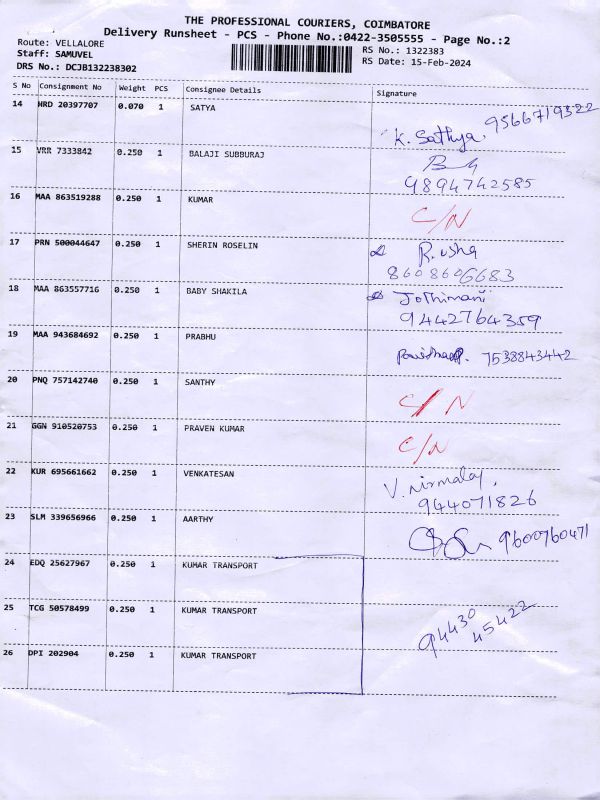 THE PROFESSIONAL COURIERS, COIMBATORE
Delivery Runsheet - PCS - Phone No.:0422-3505555 - Page No.:2
Route: VELLALORE
RS No.: 1322383
Staff: SAMUVEL
RS Date: 15-Feb-2024
DRS No.: DCJB132238302
S No Consignment No Weight PCS Consignee Details Signature
14 MRD 20397707 0.070 1 SATYA K. Sathya. 9566719322
15 VRR 7333842 0.250 1 BALAJI SUBBURAJ
9894742585
16 MAA 863519288 0.250 1 KUMAR C/N
17 PRN 500044647 0.250 1 SHERIN ROSELIN R. usha
8608606683
18 MAA 863557716 0.250 1 BABY SHAKILA Jothimani
9442764359
19 MAA 943684692 0.250 1 PRABHU 7538843442
20 PNQ 757142740 0.250 1 SANTHY C/N
21 GGN 910520753 0.250 1 PRAVEN KUMAR C/N
22 KUR 695661662 0.250 1 VENKATESAN V. nirmalaj.
944071826
23 SLM 339656966 0.250 1 AARTHY 9600760471
24 EDQ 25627967 0.250 1 KUMAR TRANSPORT
25 TCG 50578499 0.250 1 KUMAR TRANSPORT 94430
45422
26 DPI 202904 0.250 1 KUMAR TRANSPORT